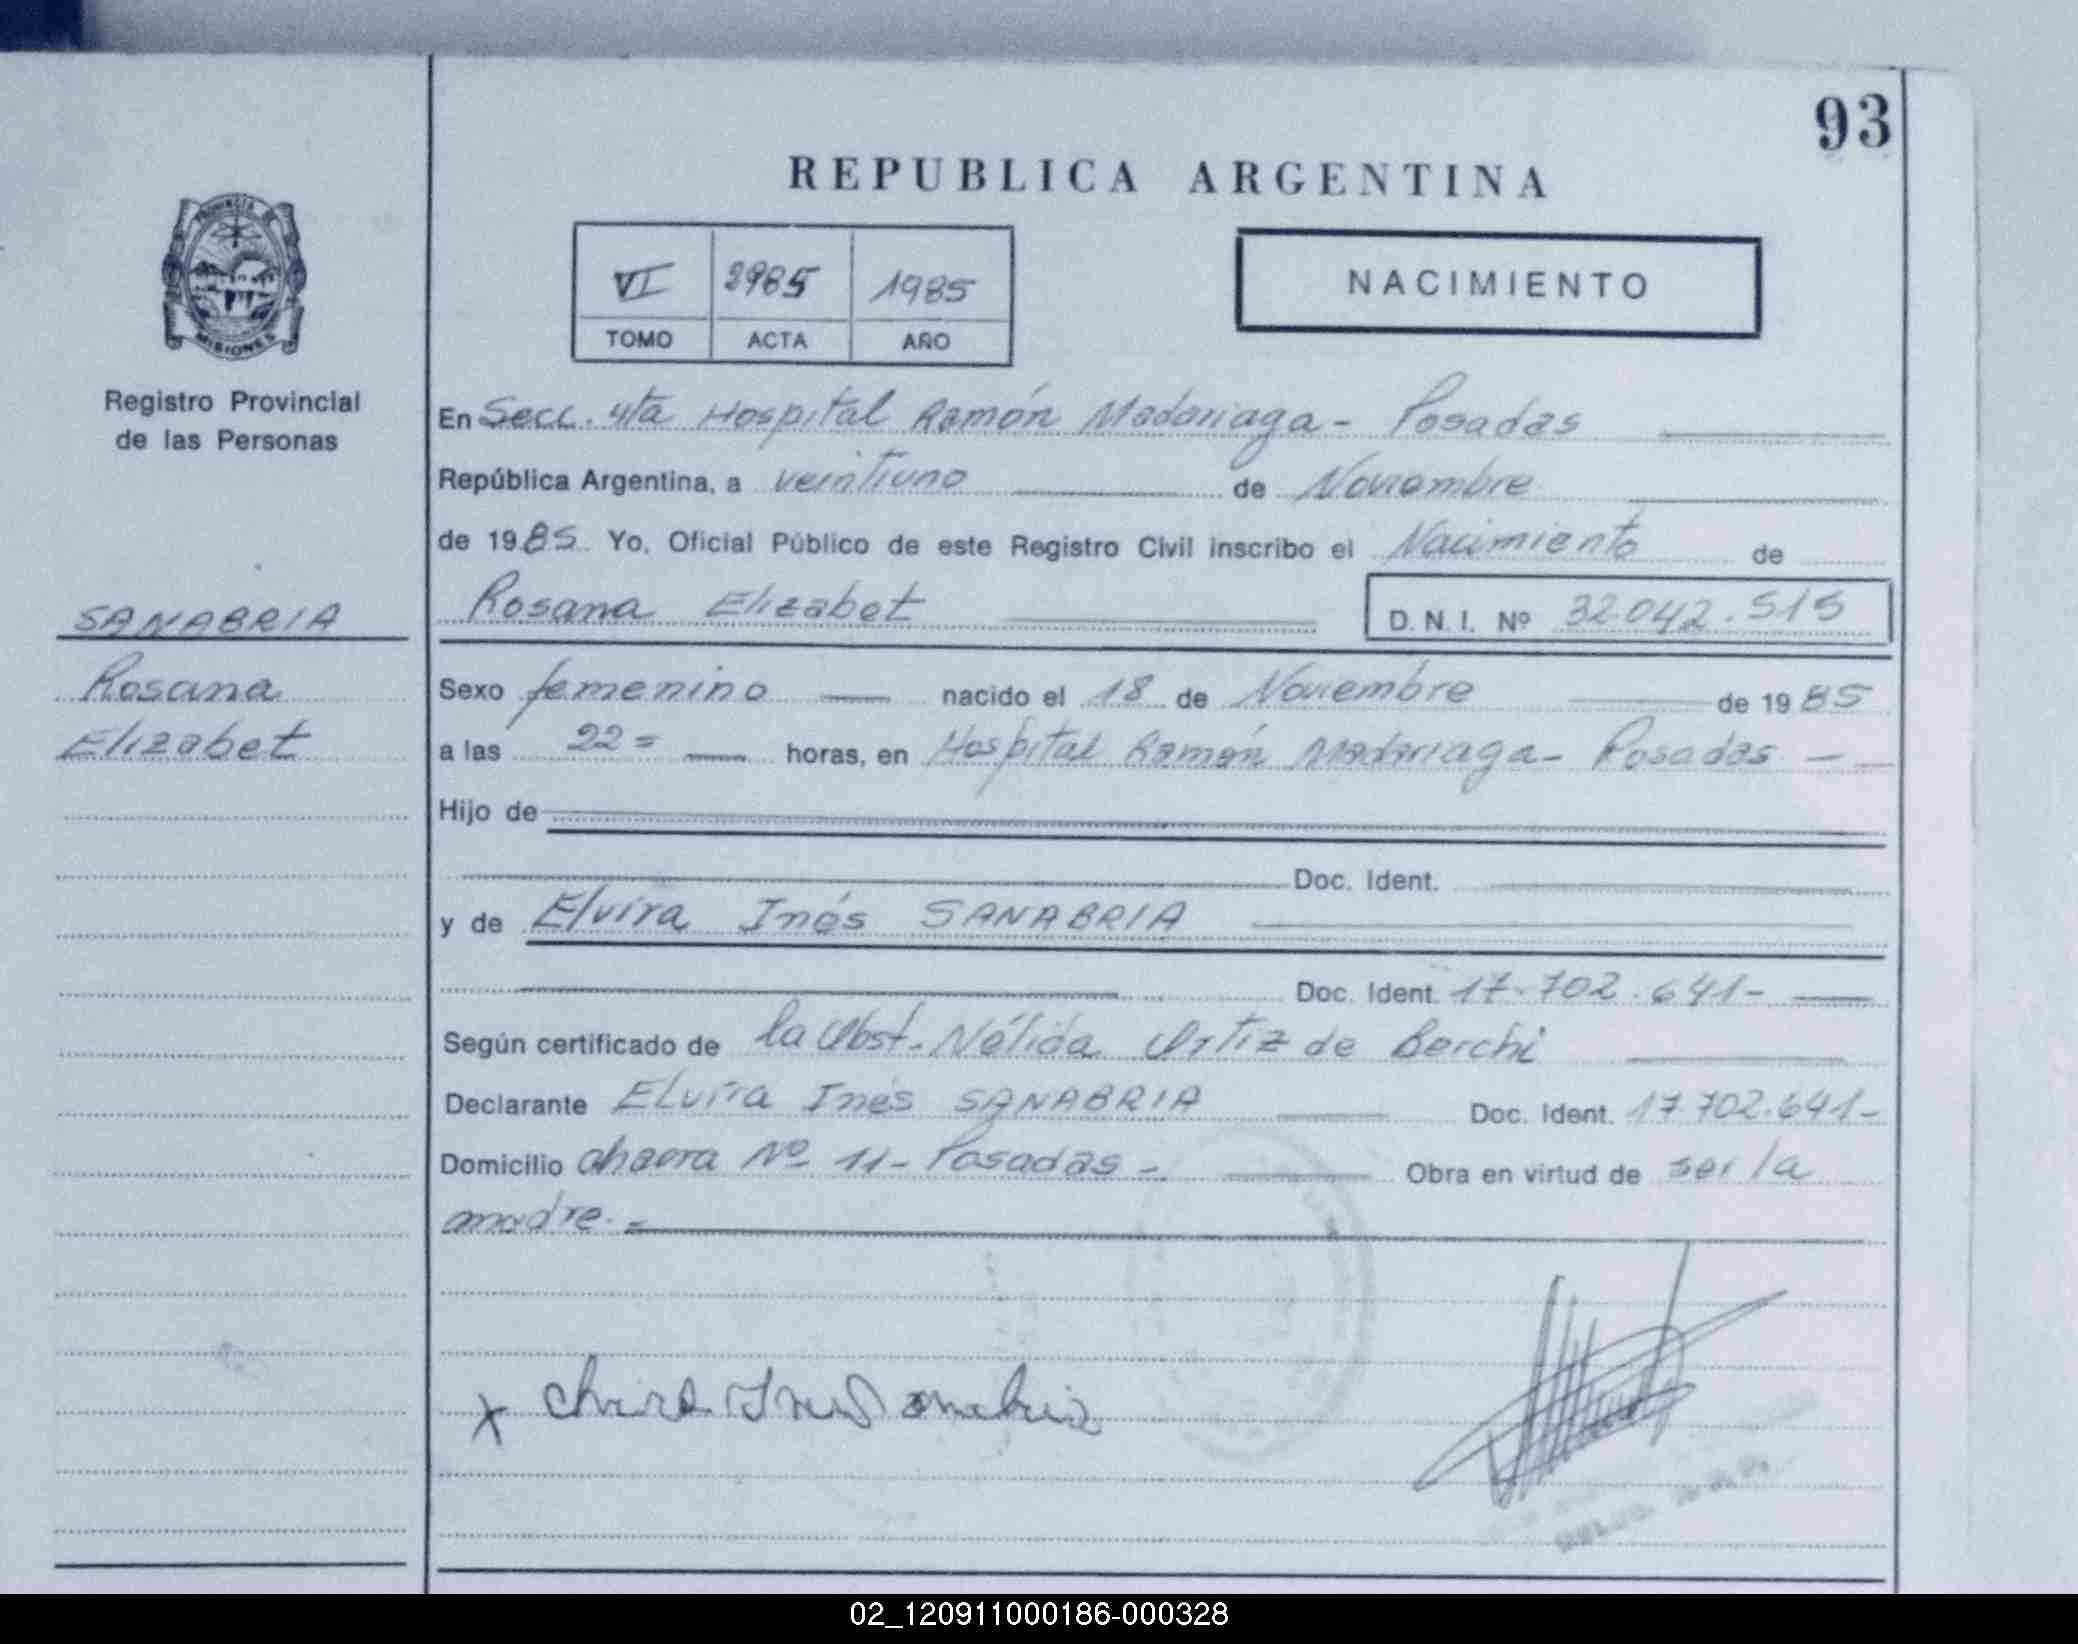 93
REPUBLICA ARGENTINA
PROVINCIA DE
MISIONES
Registro Provincial
de las Personas
VI 2985 1985
TOMO ACTA AÑO
NACIMIENTO
En Secc. 4ta Hospital Ramón Madariaga - Posadas
República Argentina, a veintiuno de Noviembre
de 1985 Yo, Oficial Público de este Registro Civil inscribo el Nacimiento de
Rosana Elizabet D.N.I. Nº 32.042.515
SANABRIA
Rosana
Elizabet
Sexo femenino nacido el 18 de Noviembre de 1985
a las 22= horas, en Hospital Ramón Madariaga - Posadas -
Hijo de
Doc. Ident.
y de Elvira Inés SANABRIA
Doc. Ident. 17.702.641-
Según certificado de la Obst. Nélida Ortiz de Berchi
Declarante Elvira Inés SANABRIA Doc. Ident. 17.702.641-
Domicilio chacra Nº 11 - Posadas - Obra en virtud de ser la
madre. =
x Elvira Ines Sanabria
02_120911000186-000328